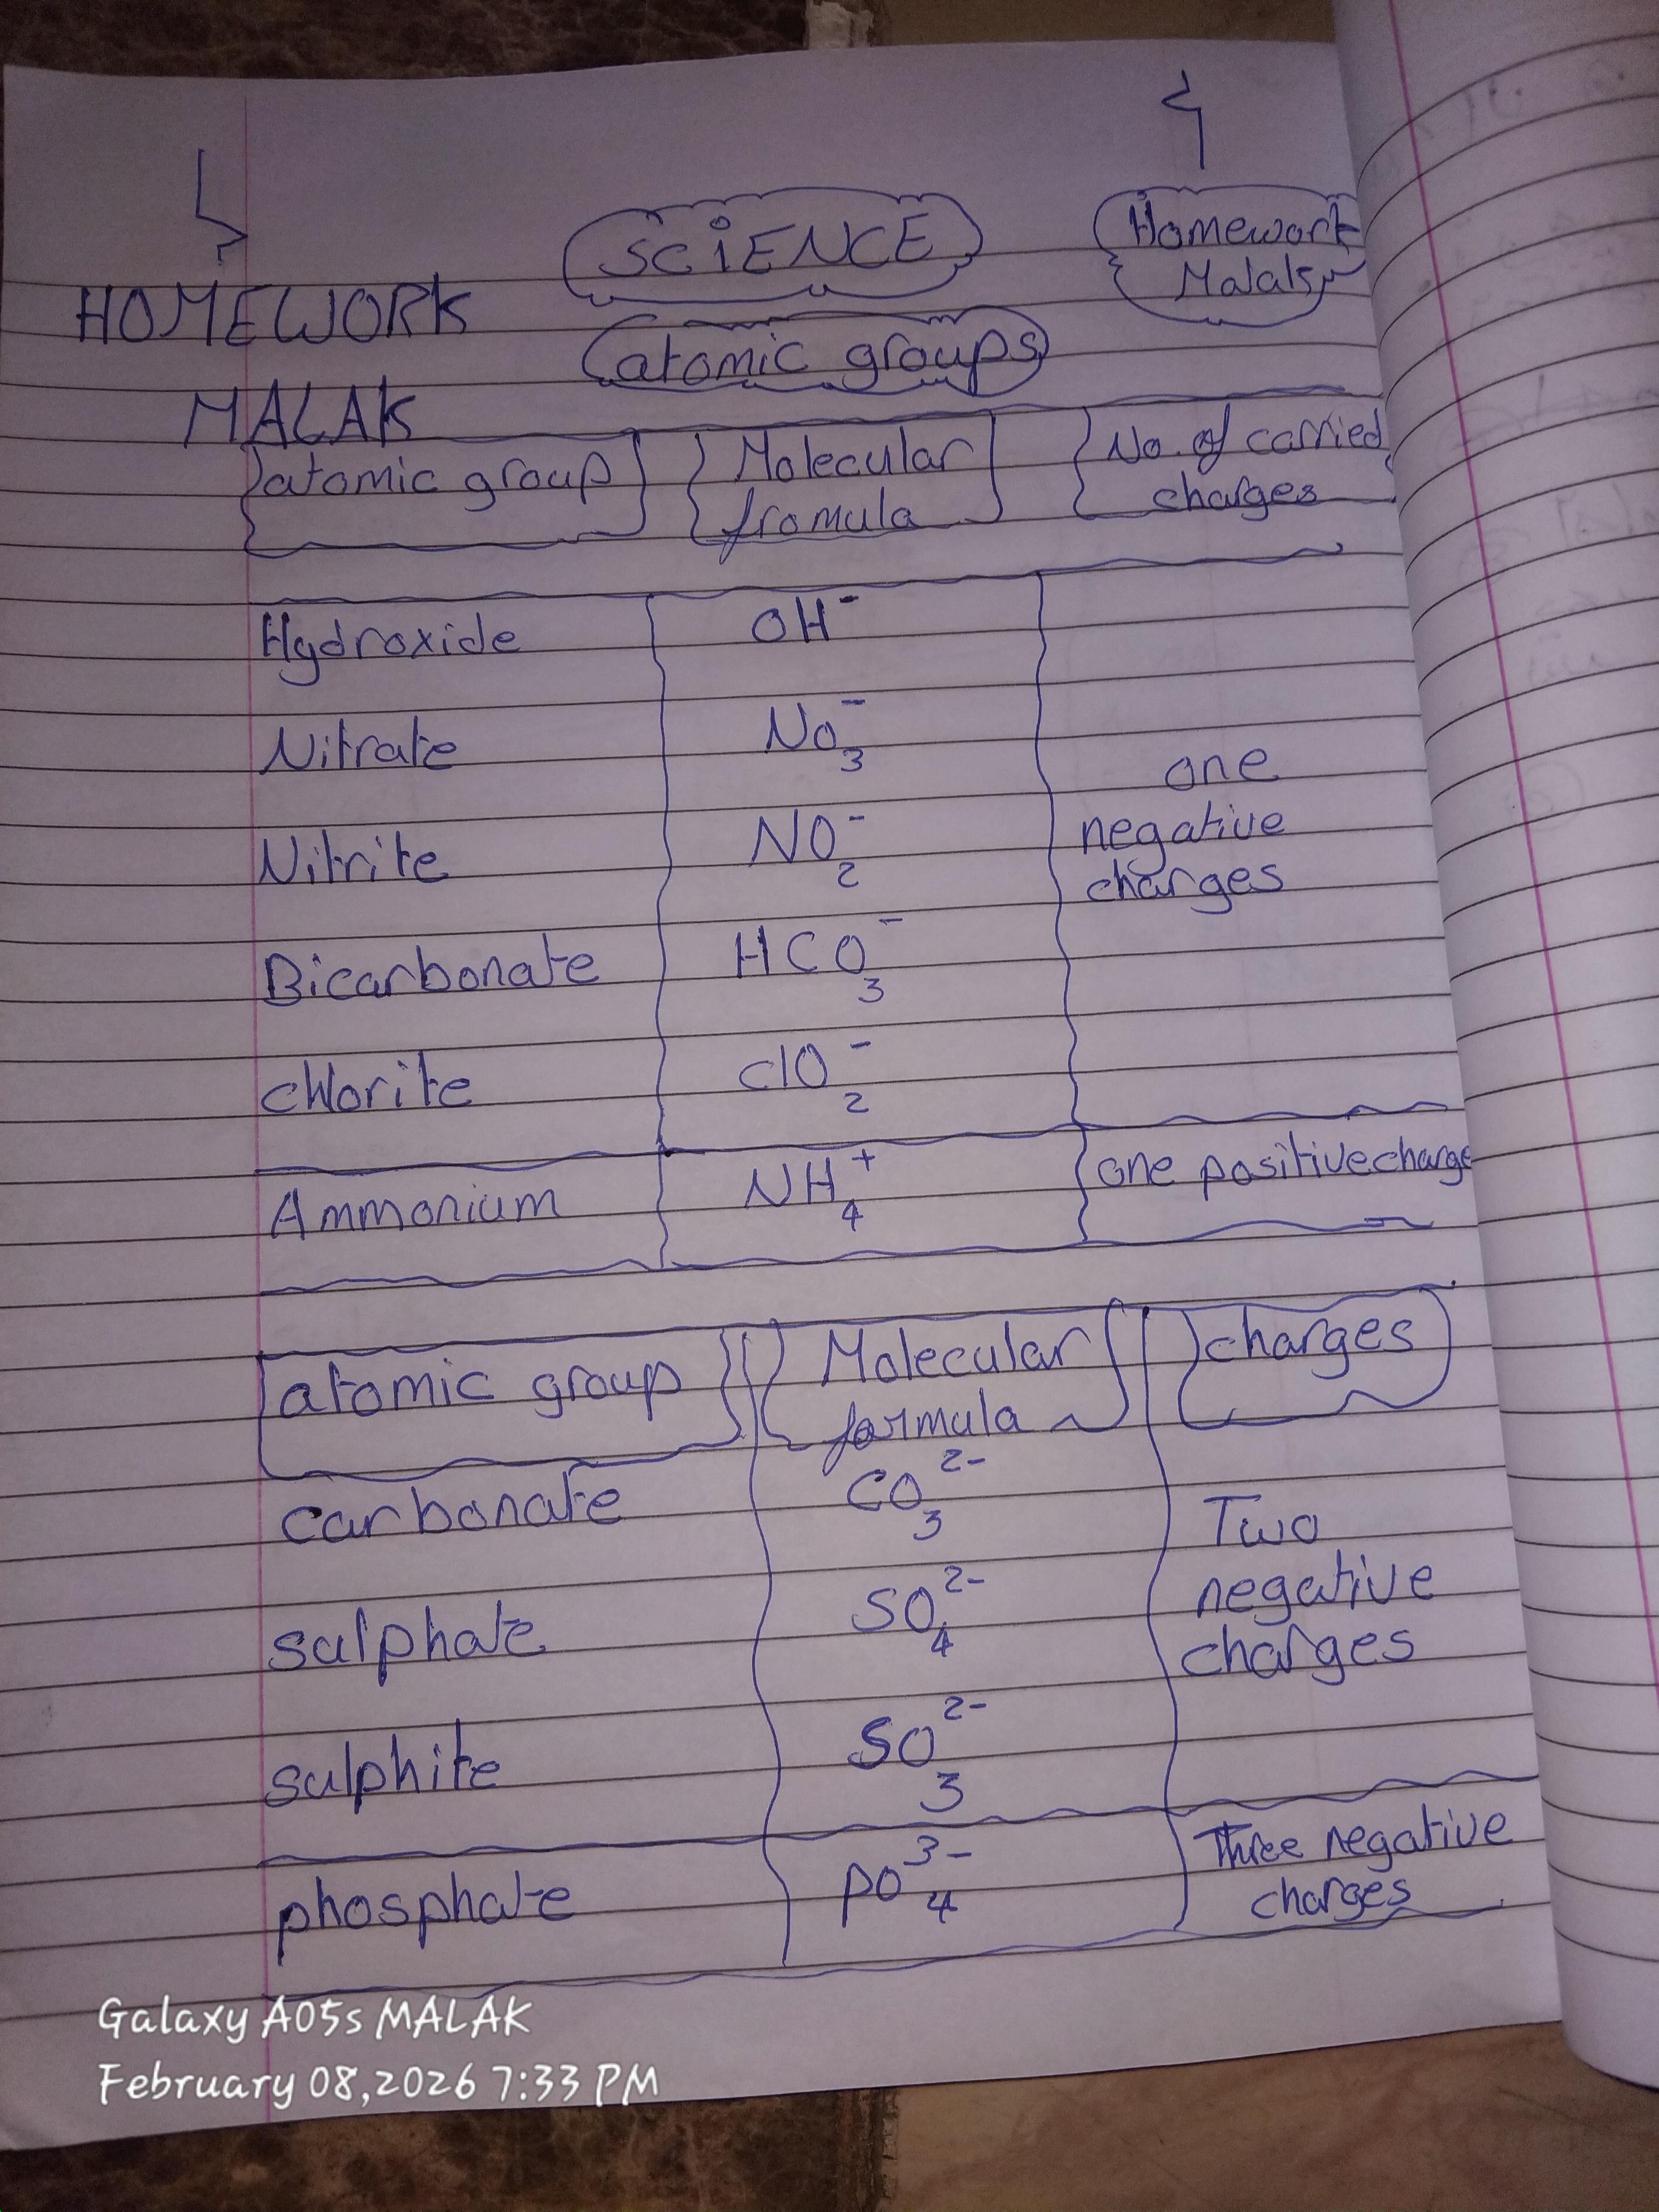 SCIENCE
Homework
Malak
HOMEWORK
MALAK
atomic groups
atomic group Molecular fromula No. of carried charges
Hydroxide OH⁻
Nitrate No₃⁻
Nitrite NO₂⁻
Bicarbonate HCO₃⁻
chlorite clO₂⁻
one
negative
charges
Ammonium NH₄⁺ one positive charge
atomic group Molecular formula charges
carbonate CO₃²⁻
sulphate SO₄²⁻
sulphite SO₃²⁻
Two
negative
charges
phosphate po₄³⁻ Three negative charges
Galaxy A05s MALAK
February 08,2026 7:33 PM